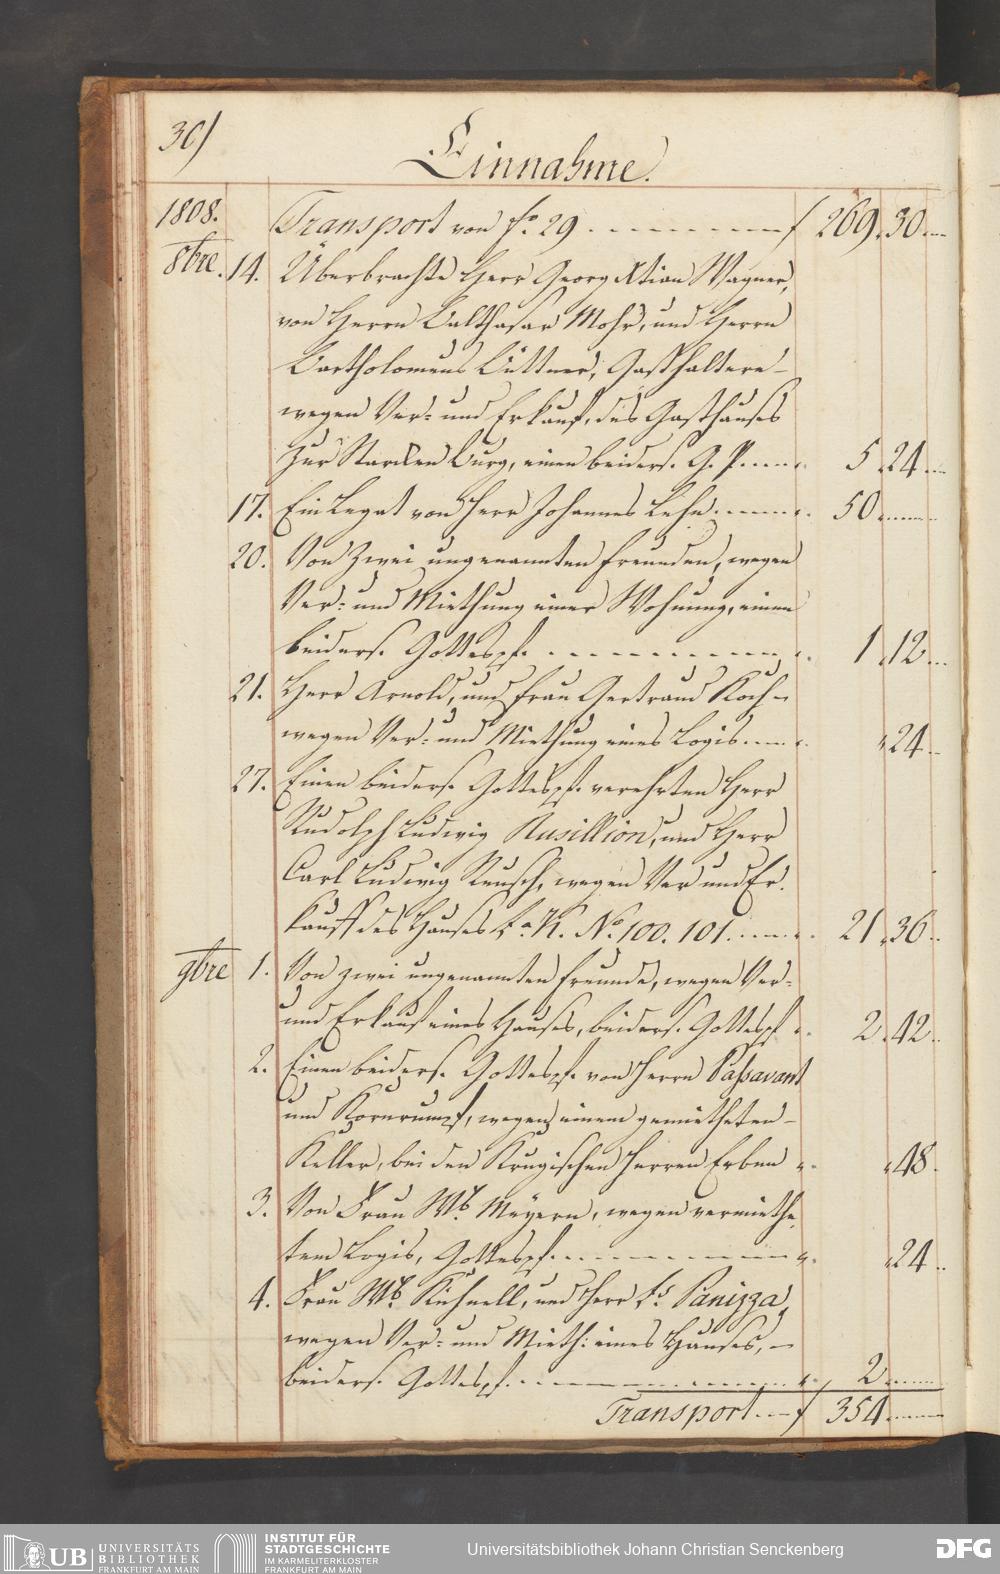 30)
Einnahme.
1808. Transport von fo. 29 . . . . . f 269. 30. —
8bre. 14. Überbrachte Herr Georg Xtian Wagner,
von Herrn Balthasar Mohr, und Herrn
Bartholomeus Büttner, Gasthaltere
wegen Ver- und Erkauf, des Gasthauses
zur Starcken Burg, einen beiders. G. P. — „ 5 „ 24. —
17. Ein Legat von Herr Johannes Lehr. — „ 50 „ —
20. Von Zwei ungenannten Freunden, wegen
Ver- und Miethung einer Wohnung, einen
beiders. Gottespf. . . . . „ 1 „ 12. —
21. Herr Arnold, und Frau Gertraud Koch
wegen Ver- und Miethung eines Logis. — „ „ 24. —
27. Einen beiders. Gottespf. verehrten Herr
Rudolph Ludwig Rusillion, und Herr
Carl Ludwig Reusch, wegen Ver und Er-
kauff des Hauses La. K. No. 100. 101. — „ 21 „ 36. —
9bre 1. Von zwei ungenannten Freunde, wegen Ver-
und Erkauf eines Hauses, beiders. Gottespf. „ 2 „ 42. —
2. Einen beiders. Gottespf. von Herrn Paßavant
und Kornrumpf, wegen einem gemietheten
Keller, bei den Krugischen Herren Erben „ „ 48. —
3. Von Frau Wb. Meyern, wegen vermiethe-
tem Logis, Gottespf. . . . . „ „ 24. —
4. Frau Wb. Kühnell, und Herr Panizza,
wegen Ver- und Mieth: eines Hauses, —
beiders. Gottespf. . . . . „ 2 „ —
Transport. — f 354. —
UB UNIVERSITÄTS
BIBLIOTHEK
FRANKFURT AM MAIN
INSTITUT FÜR
STADTGESCHICHTE
IM KARMELITERKLOSTER
FRANKFURT AM MAIN
Universitätsbibliothek Johann Christian Senckenberg
DFG